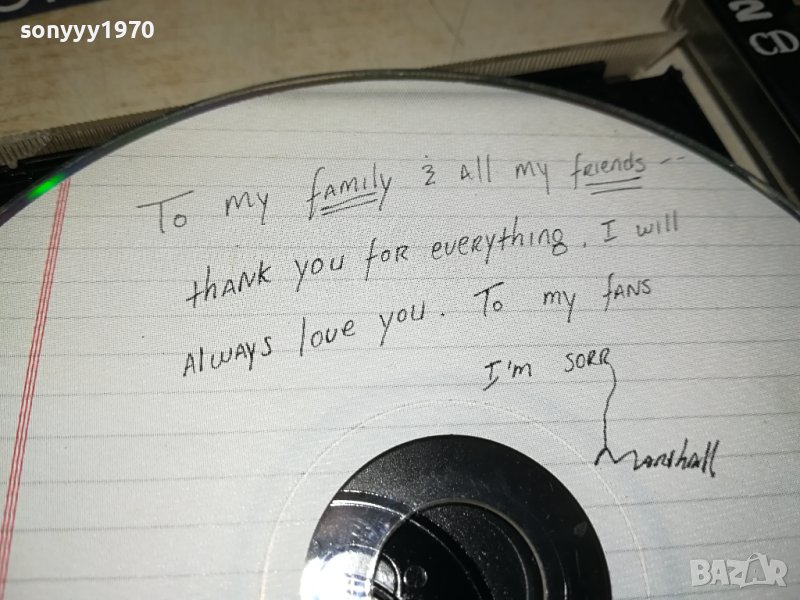 sonyyy1970
To my family & all my friends --
thank you for everything. I will
Always love you. To my fans
I'm sorr
Marshall
BAZAR